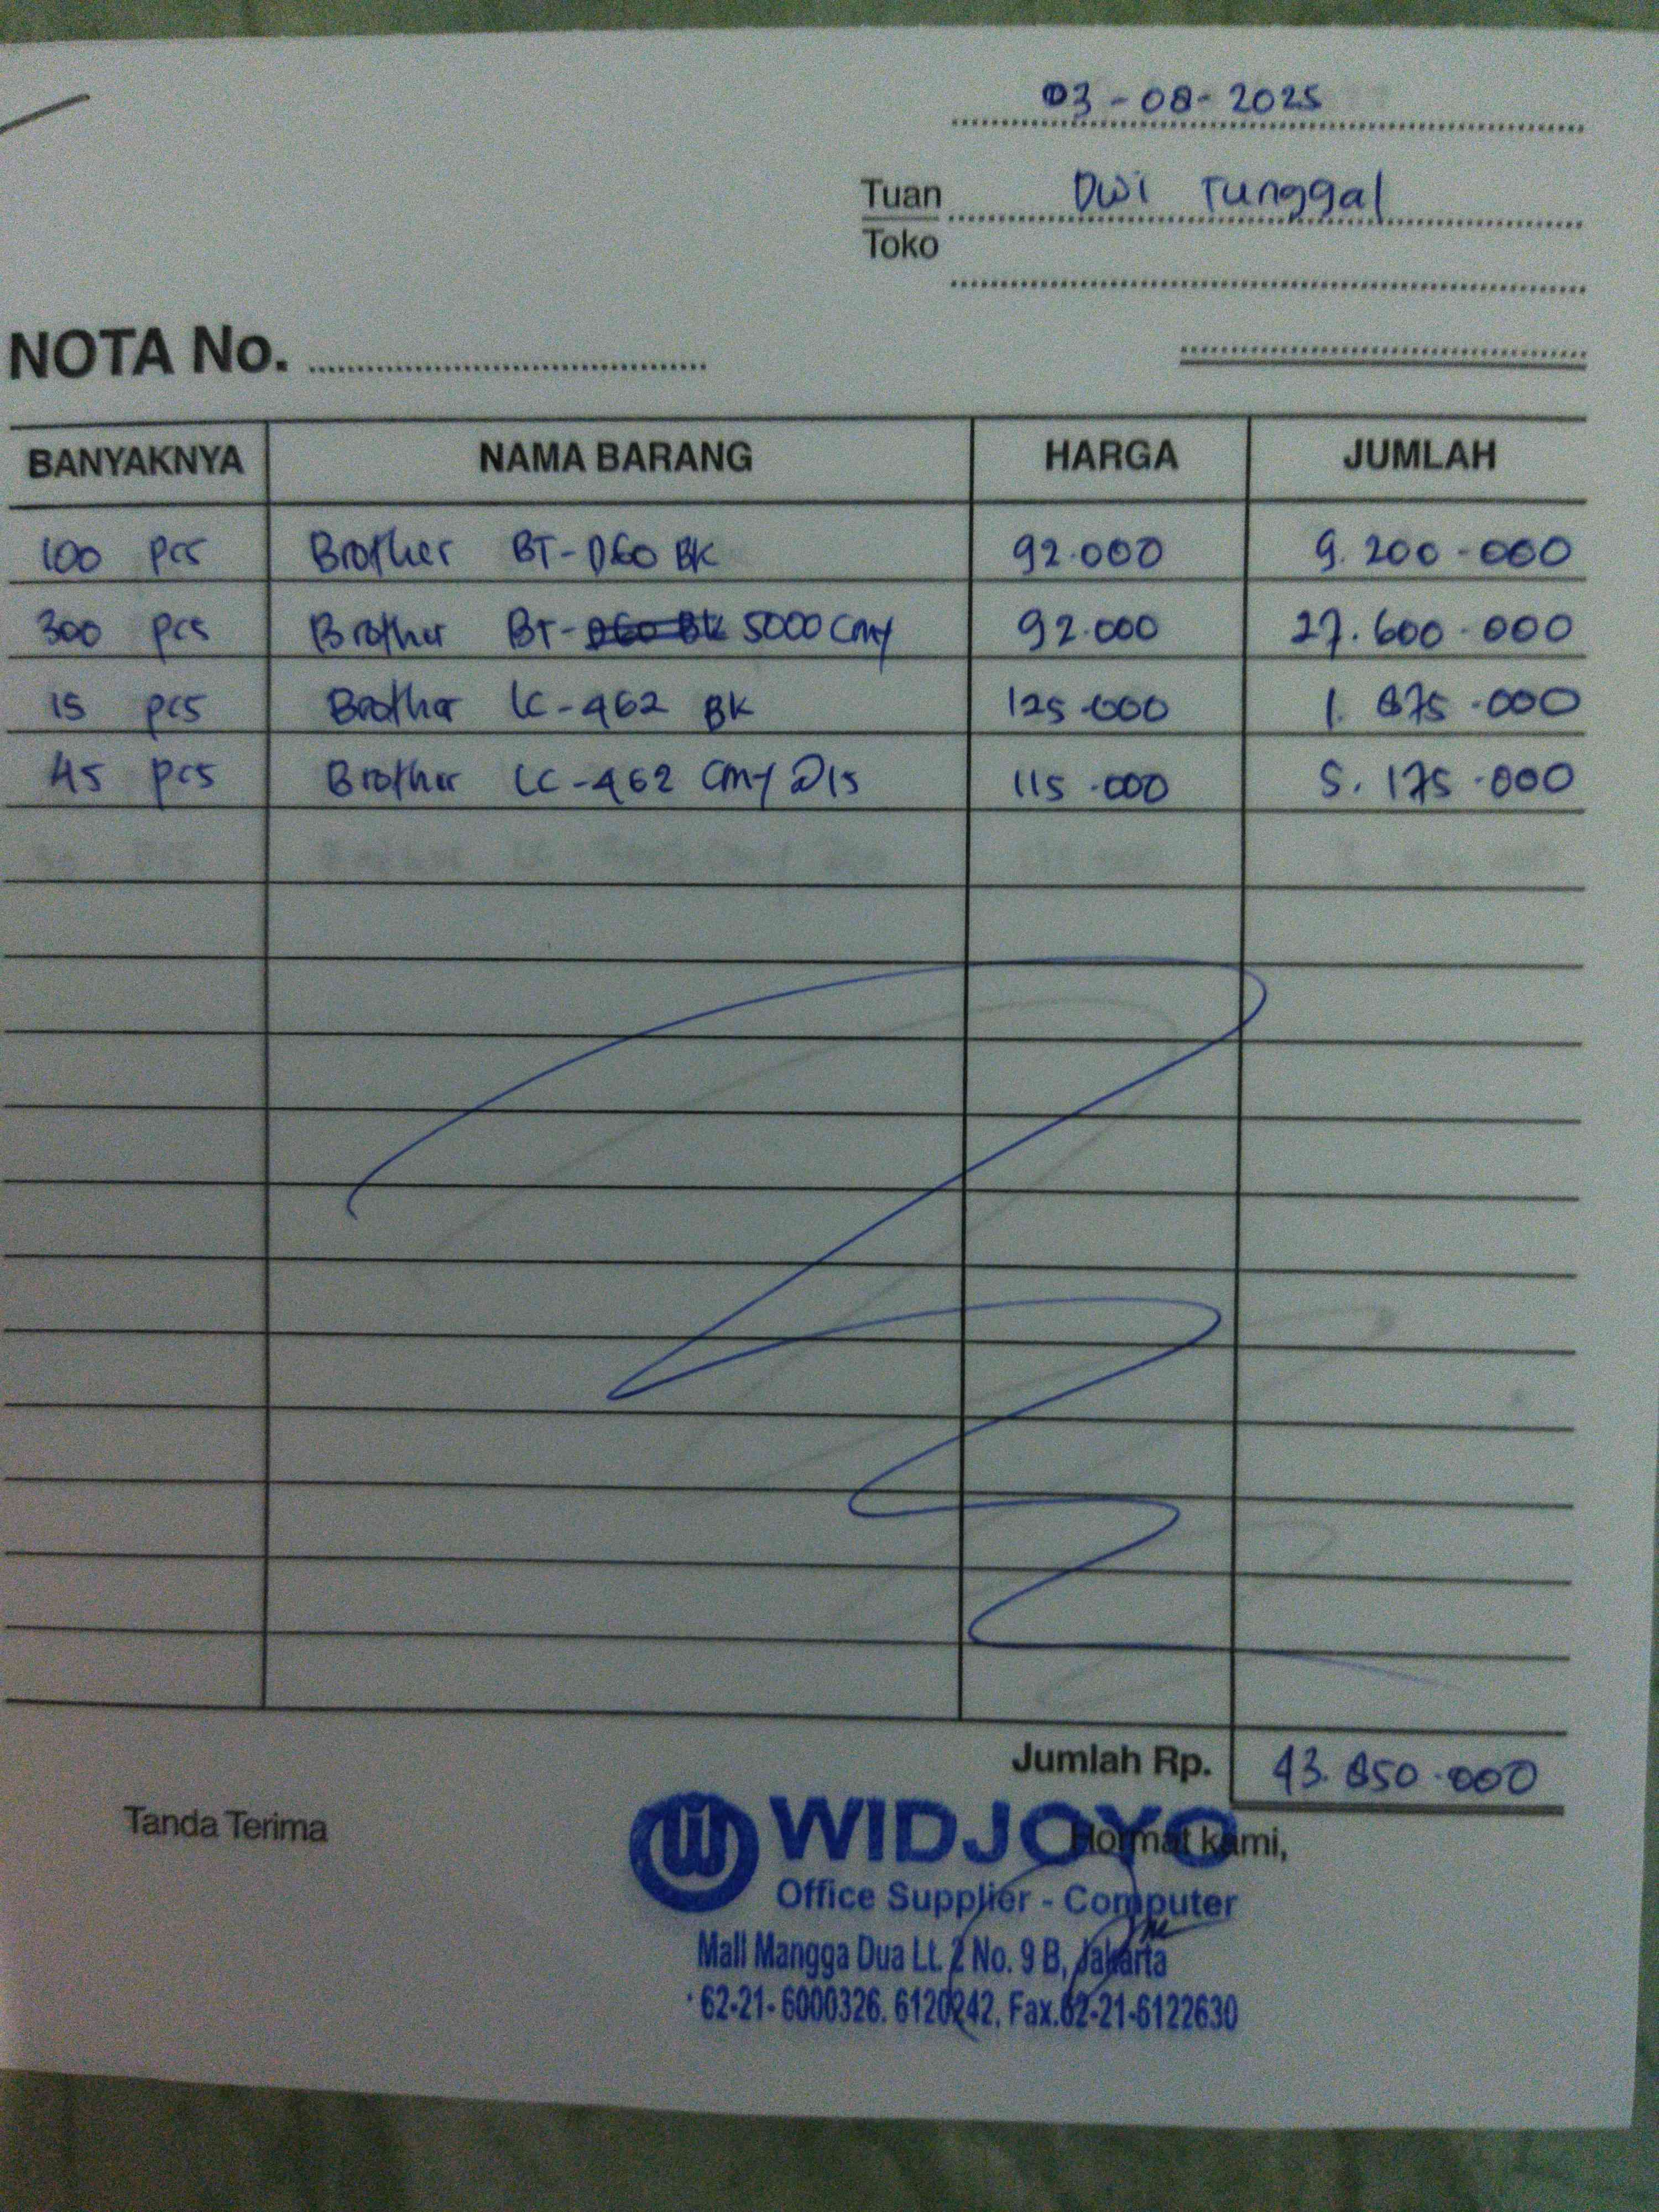 03-08-2025
Tuan Dwi Tunggal
Toko
NOTA No.
BANYAKNYA NAMA BARANG HARGA JUMLAH
100 pcs Brother BT-D60 BK 92.000 9.200.000
300 pcs Brother BT-D60 BK 5000 CMY 92.000 27.600.000
15 pcs Brother LC-462 BK 125.000 1.875.000
45 pcs Brother LC-462 CMY @15 115.000 5.175.000
Jumlah Rp. 43.850.000
Tanda Terima
Hormat kami,
WIDJOYO
Office Supplier - Computer
Mall Mangga Dua Lt. 2 No. 9 B, Jakarta
62-21-6000326. 6120242. Fax.62-21-6122630